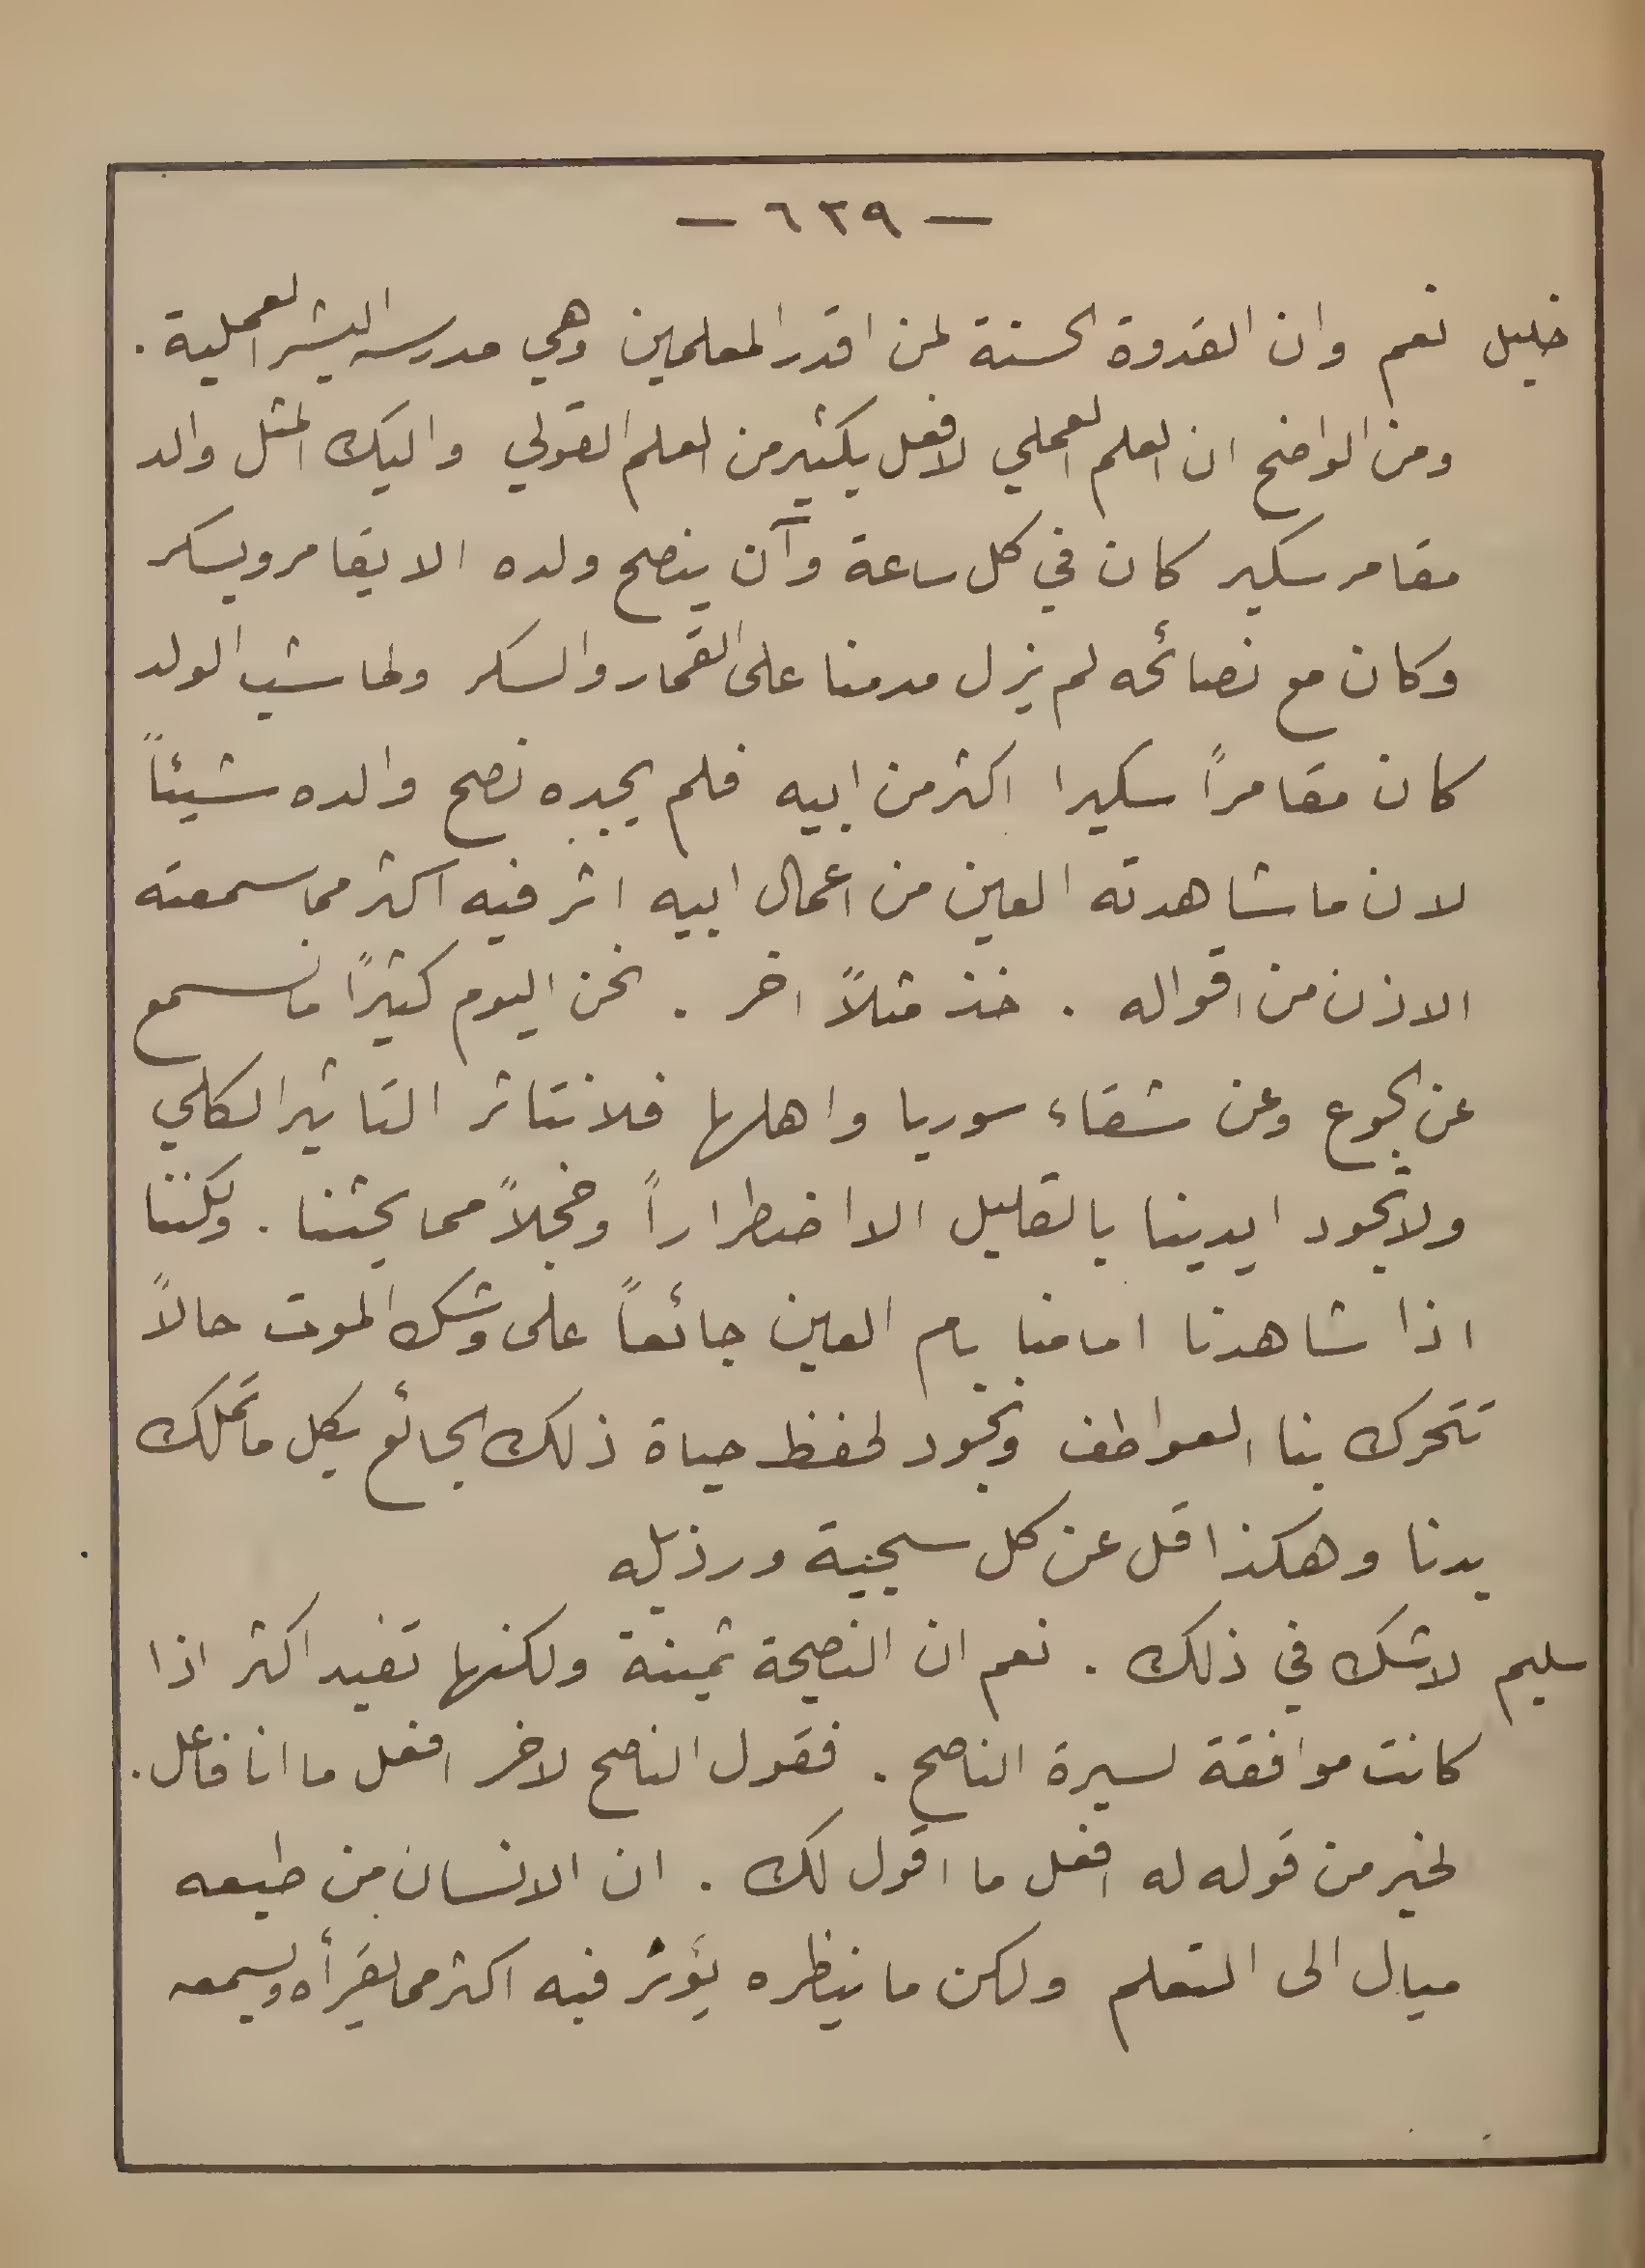 — ٦٢٩ —
خليل نعم وان القدوة الحسنة لمن اقدر المعلمين وهي مدرسة البشر العملية .
ومن الواضح ان العلم العملي لافعل بكثير من العلم القولي واليك المثل والد
مقامر سكير كان في كل ساعة وآن ينصح ولده الا يقامر ويسكر
وكان مع نصائحه لم يزل مدمنا على القمار والسكر ولما شب الولد
كان مقامراً سكيرا اكثر من ابيه فلم يجده نصح والده شيئاً
لان ما شاهدته العين من اعمال ابيه اثر فيه اكثر مما سمعته
الاذن من اقواله . خذ مثلاً اخر . نحن اليوم كثيرًا ما نسمع
عن الجوع وعن شقاء سوريا واهلها فلا نتاثر التاثير الكلي
ولا تجود ايدينا بالقليل الا اضطراراً وخجلاً ممن يحثنا . ولكننا
اذا شاهدنا امامنا بام العين جائعاً على وشك الموت حالاً
تتحرك بنا العواطف ونجود لحفظ حياة ذلك الجائع بكل ما تملك
يدنا وهكذا قل عن كل سجية ورذيله
سليم لا شك في ذلك . نعم ان النصيحة ثمينة ولكنها تفيد اكثر اذا
كانت موافقة لسيرة الناصح . فقول الناصح لاخر افعل ما انا فاعل .
لخير من قوله له افعل ما اقول لك . ان الانسان من طبعه
ميال الى التعلم ولكن ما ينظره يؤثر فيه اكثر مما يقرأه ويسمعه